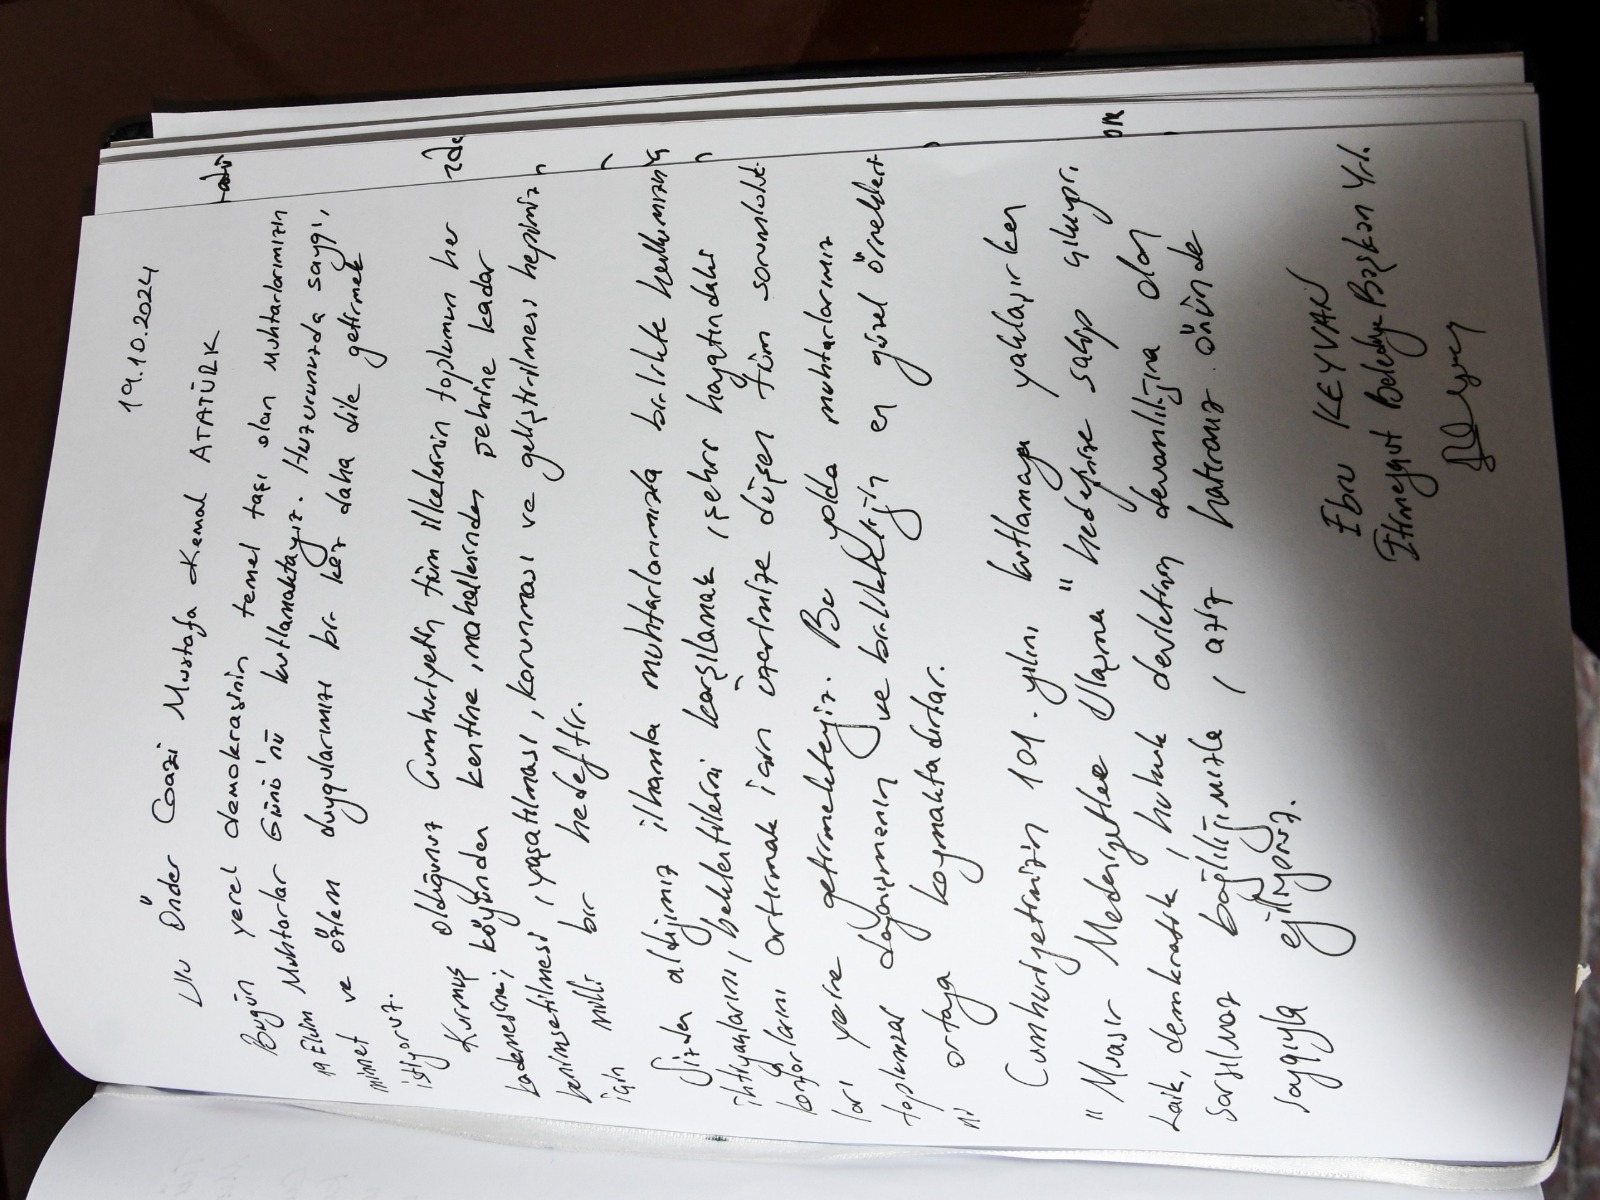 19.10.2024
Ulu Önder Gazi Mustafa Kemal ATATÜRK
Bugün yerel demokrasinin temel taşı olan muhtarlarımızın
19 Ekim Muhtarlar Günü'nü kutlamaktayız. Huzurunuzda saygı,
minnet ve özlem duygularımızı bir kez daha dile getirmek
istiyoruz.
Kurmuş olduğunuz Cumhuriyetin tüm ilkelerinin toplumun her
kademesine; köyünden kentine, mahallesinden şehrine kadar
benimsetilmesi, yaşatılması, korunması ve geliştirilmesi hepimiz
için milli bir hedeftir.
Sizden aldığımız ilhamla muhtarlarımızla birlikte halkımızın
ihtiyaçlarını, beklentilerini karşılamak, şehir hayatındaki
konforlarını artırmak için üzerimize düşen tüm sorumluluk-
ları yerine getirmekteyiz. Bu yolda muhtarlarımız
toplumsal dayanışmanın ve birlikteliğin en güzel örnekleri-
ni ortaya koymaktadırlar.
Cumhuriyetimizin 101. yılını kutlamaya yaklaşırken
"Muasır Medeniyetlere Ulaşma" hedefinize sahip çıkıyor,
Laik, demokratik, hukuk devletinin devamlılığına olan
sarsılmaz bağlılığımızla, aziz hatıranız önünde
saygıyla eğiliyoruz.
Ebru KEYVAN
Etimesgut Belediye Başkan Yrd.